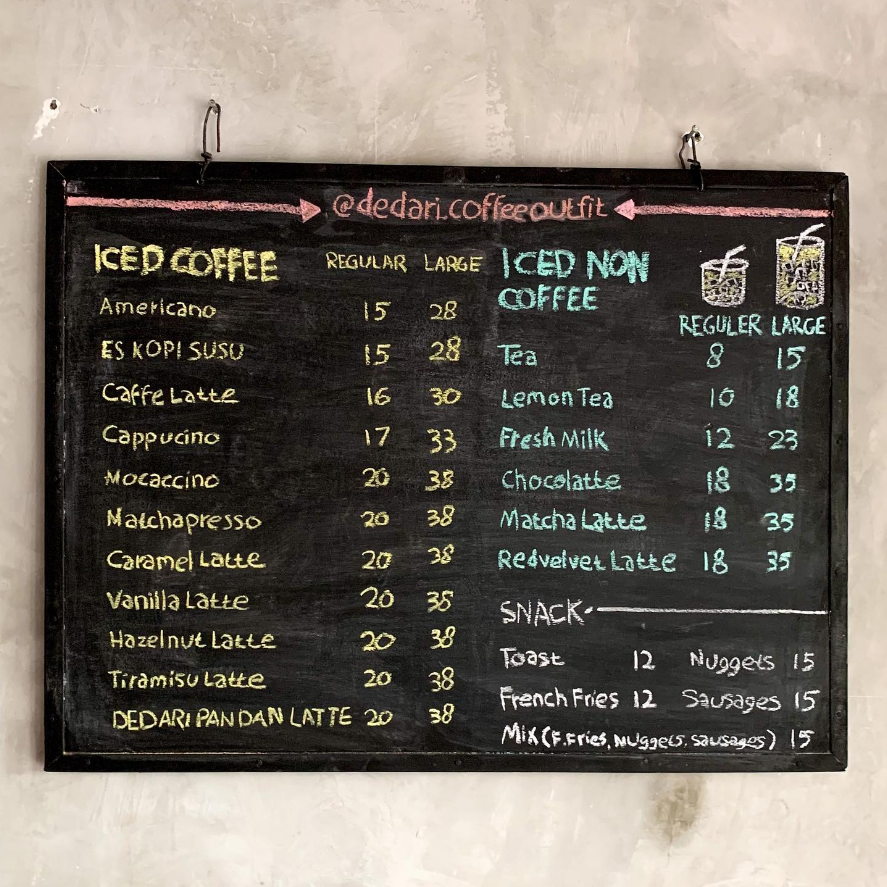 @dedari.coffeeoutfit
ICED COFFEE REGULAR LARGE
Americano 15 28
ES KOPI SUSU 15 28
Caffe Latte 16 30
Cappucino 17 33
Mocaccino 20 38
Matchapresso 20 38
Caramel Latte 20 38
Vanilla Latte 20 38
Hazelnut Latte 20 38
Tiramisu Latte 20 38
DEDARI PANDAN LATTE 20 38
ICED NON
COFFEE
REGULER LARGE
Tea 8 15
Lemon Tea 10 18
Fresh Milk 12 23
Chocolatte 18 35
Matcha Latte 18 35
Redvelvet Latte 18 35
SNACK
Toast 12 Nuggets 15
French Fries 12 Sausages 15
Mix (F.Fries, Nuggets, Sausages) 15